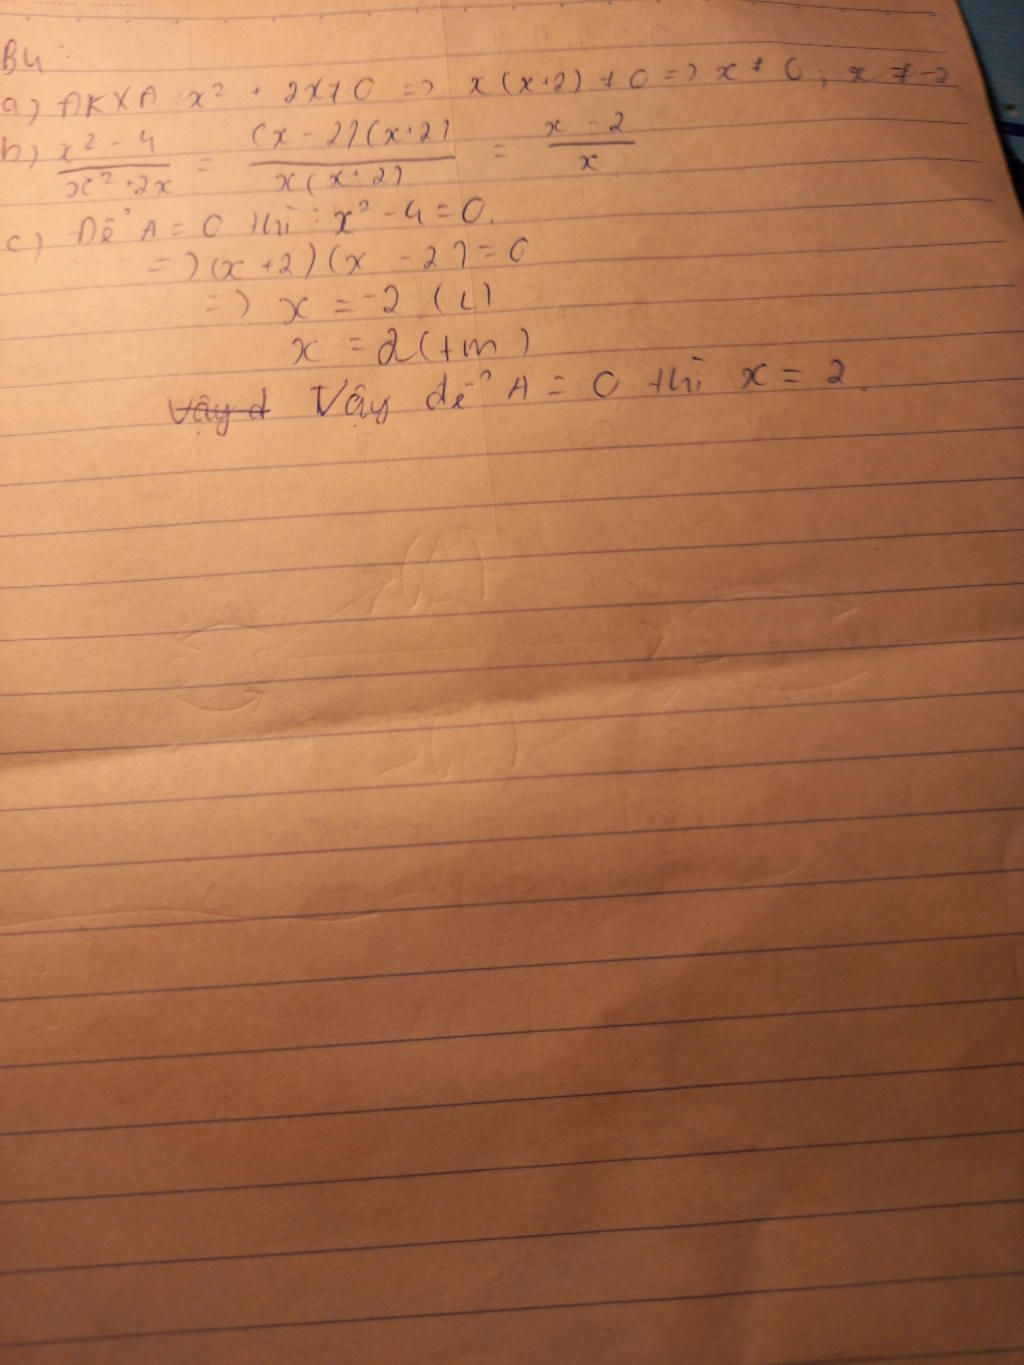 B4:
a) ĐKXĐ x² + 2x ≠ 0 => x(x+2) ≠ 0 => x ≠ 0; x ≠ -2
b) (x² - 4)/(x² + 2x) = ((x - 2)(x+2))/(x(x+2)) = (x - 2)/x
c) Để A = 0 thì: x² - 4 = 0.
=> (x + 2)(x - 2) = 0
=> x = -2 (L)
x = 2 (tm)
Vậy đ Vậy để A = 0 thì x = 2.